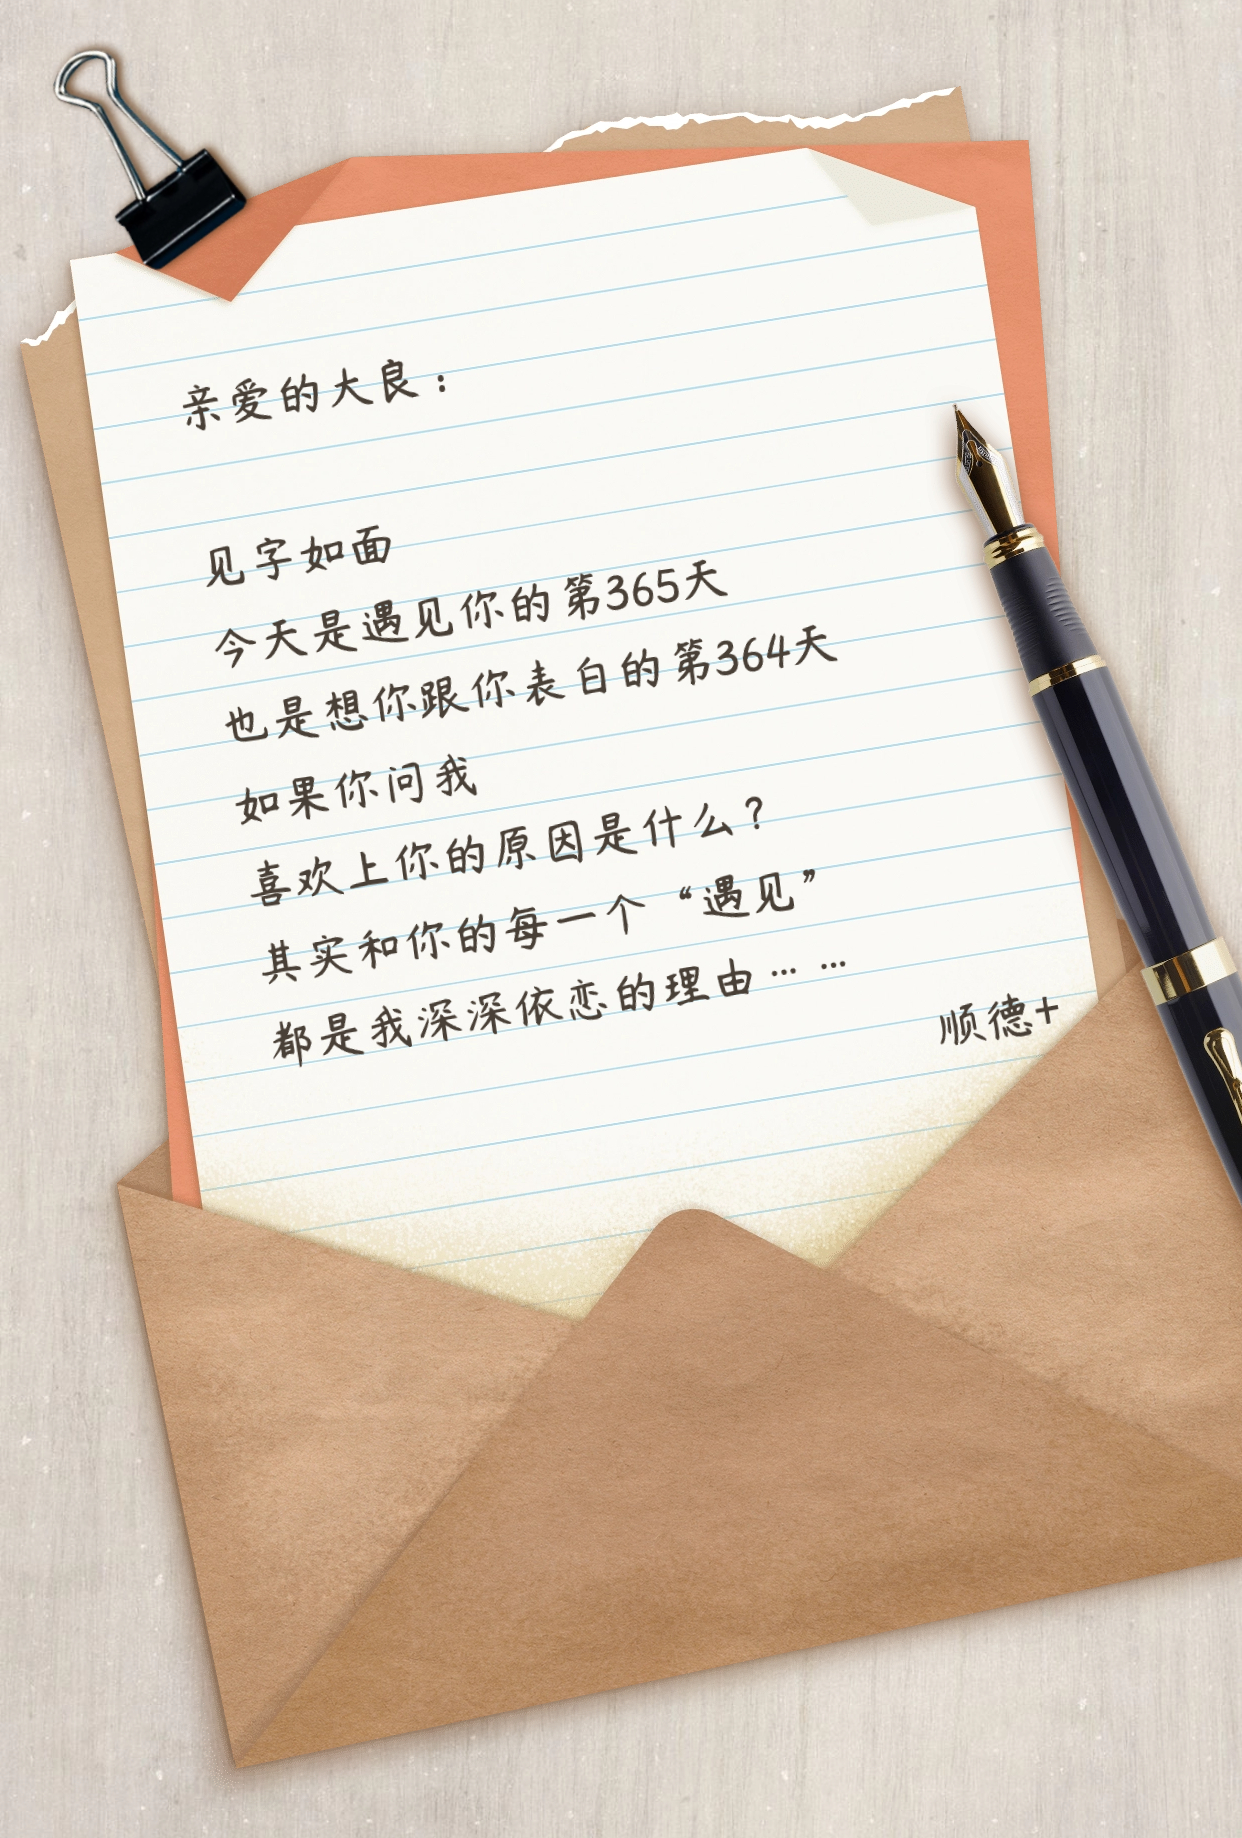 亲爱的大良：
见字如面
今天是遇见你的第365天
也是想你跟你表白的第364天
如果你问我
喜欢上你的原因是什么？
其实和你的每一个“遇见”
都是我深深依恋的理由……
顺德+